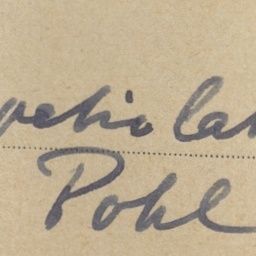 petiolat
Pohl